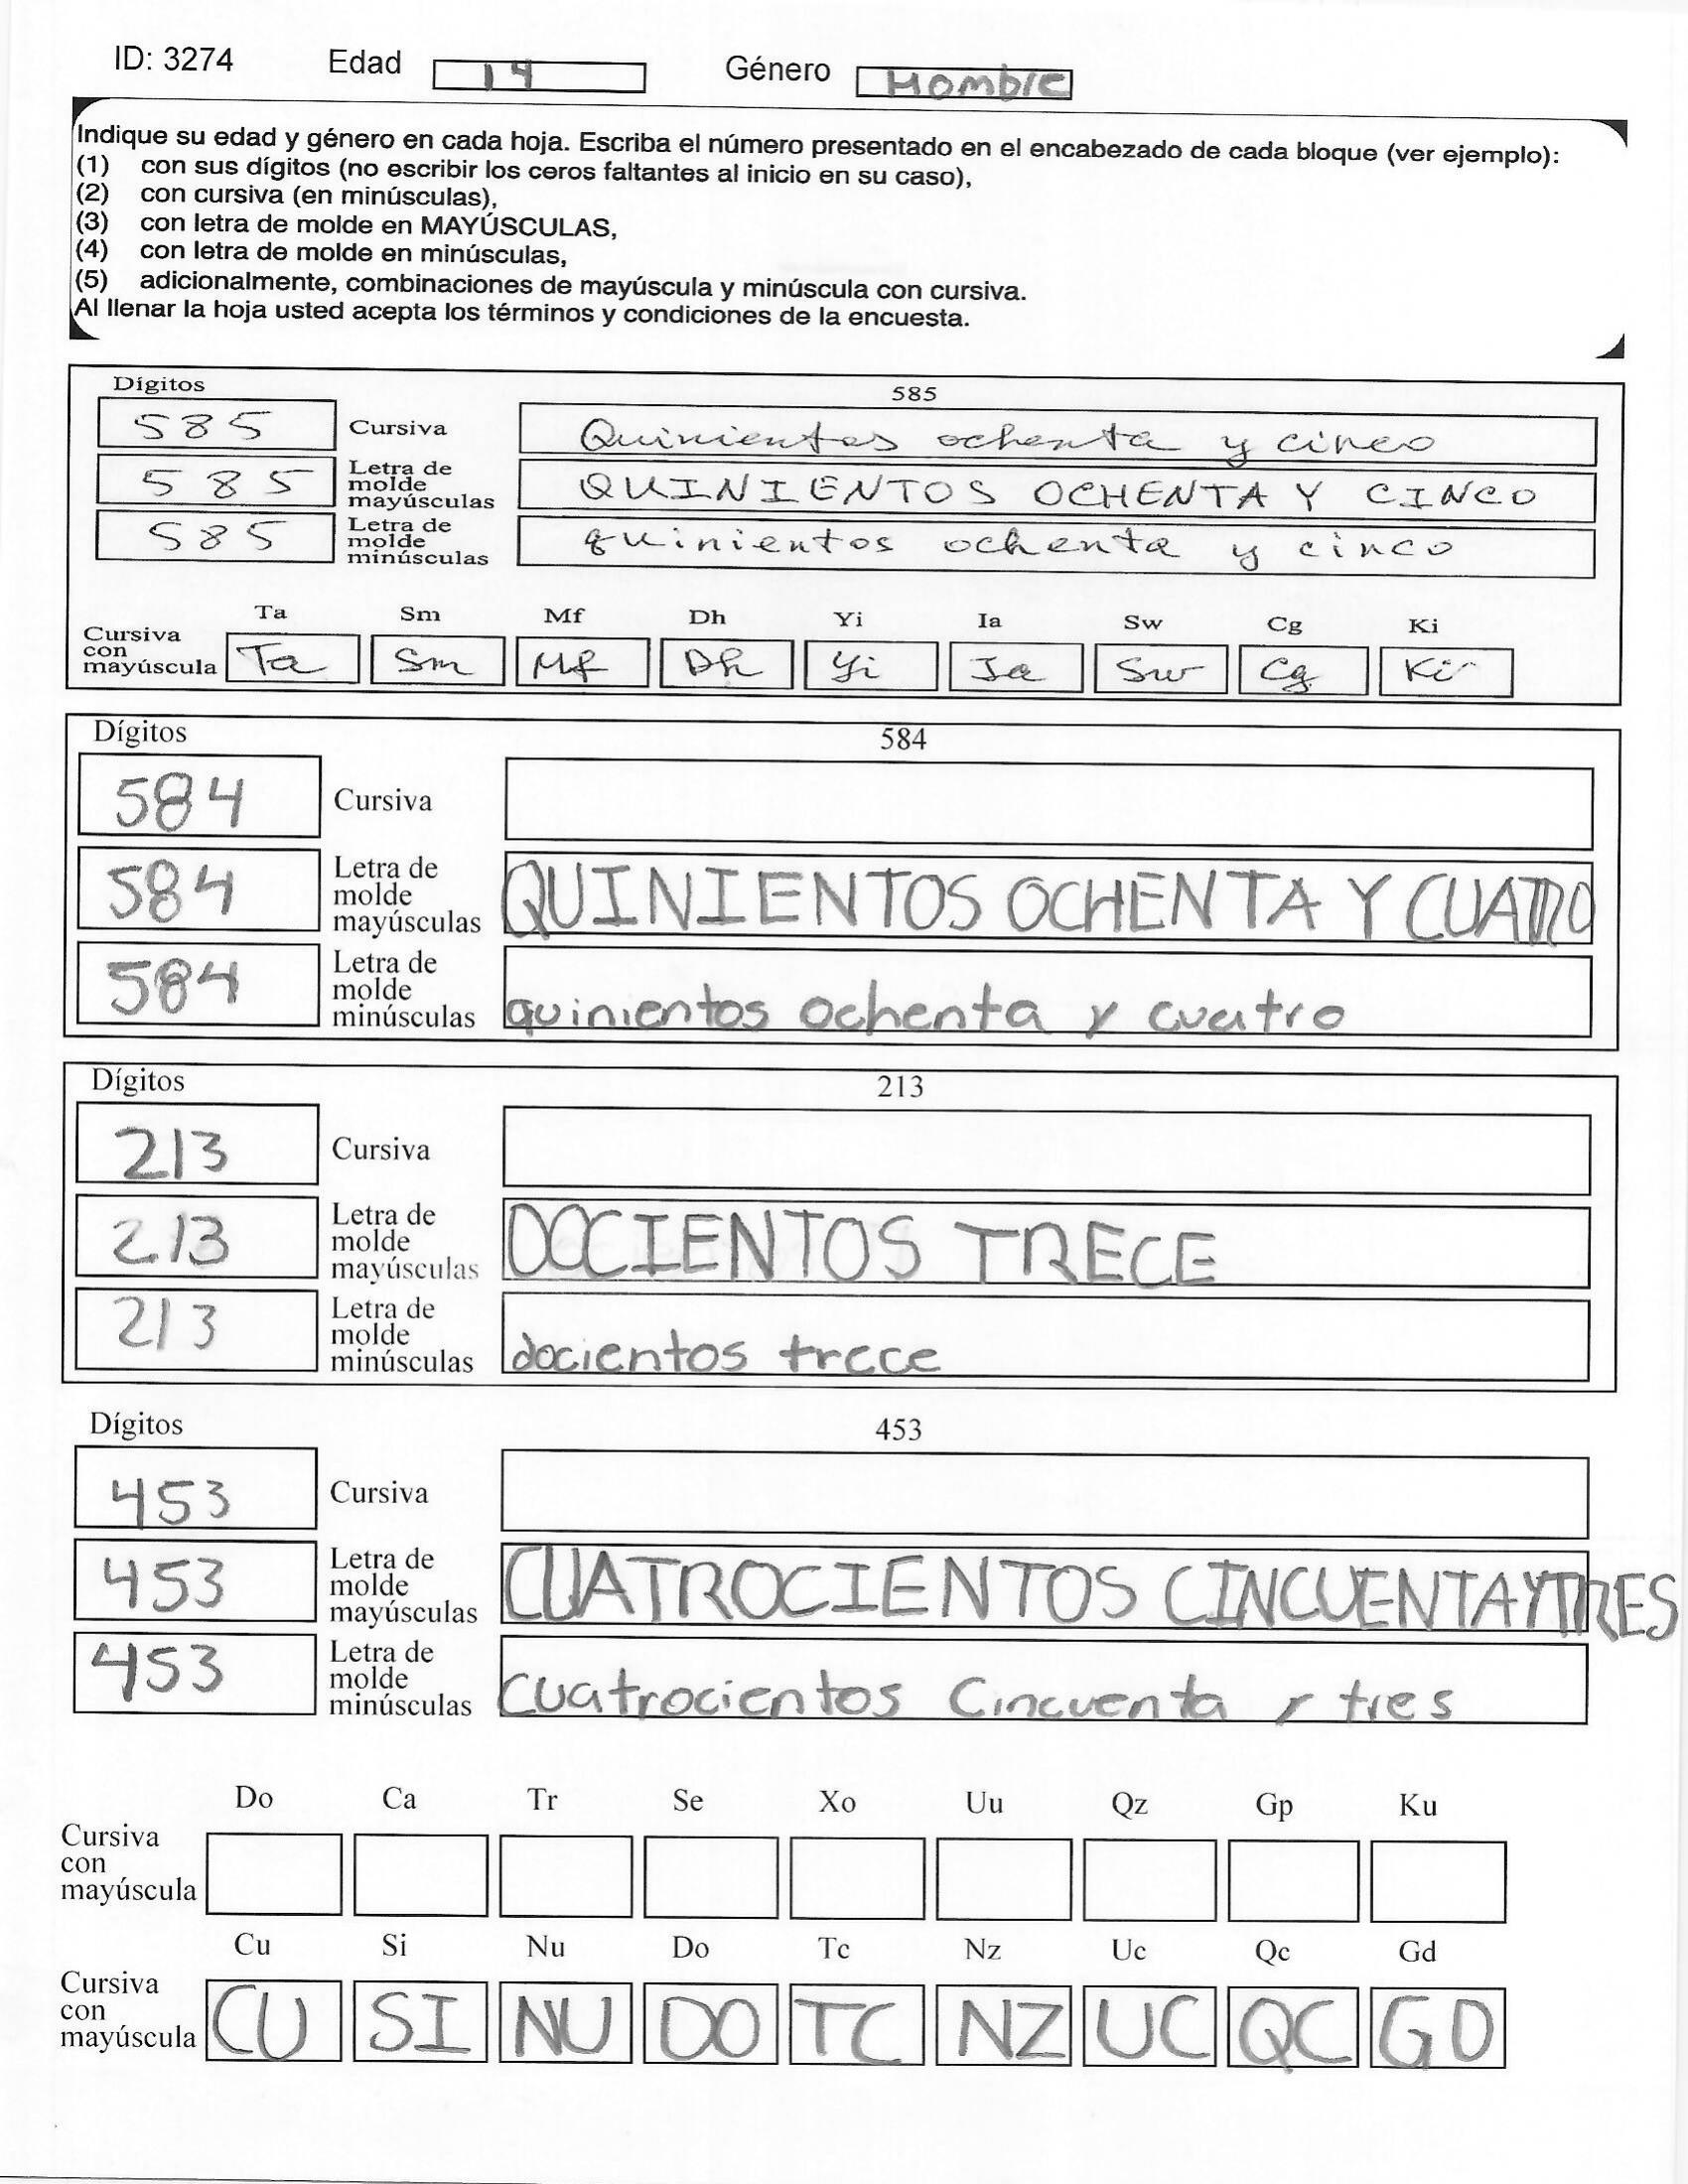 ID: 3274 Edad 14 Género Hombre
Indique su edad y género en cada hoja. Escriba el número presentado en el encabezado de cada bloque (ver ejemplo):
(1) con sus dígitos (no escribir los ceros faltantes al inicio en su caso),
(2) con cursiva (en minúsculas),
(3) con letra de molde en MAYÚSCULAS,
(4) con letra de molde en minúsculas,
(5) adicionalmente, combinaciones de mayúscula y minúscula con cursiva.
Al llenar la hoja usted acepta los términos y condiciones de la encuesta.
Dígitos 585
585 Cursiva Quinientos ochenta y cinco
585 Letra de molde mayúsculas QUINIENTOS OCHENTA Y CINCO
585 Letra de molde minúsculas quinientos ochenta y cinco
Ta Sm Mf Dh Yi Ia Sw Cg Ki
Cursiva con mayúscula Ta Sm Mf Dh Yi Ia Sw Cg Ki
Dígitos 584
584 Cursiva
584 Letra de molde mayúsculas QUINIENTOS OCHENTA Y CUATRO
584 Letra de molde minúsculas quinientos ochenta y cuatro
Dígitos 213
213 Cursiva
213 Letra de molde mayúsculas DOCIENTOS TRECE
213 Letra de molde minúsculas docientos trece
Dígitos 453
453 Cursiva
453 Letra de molde mayúsculas CUATROCIENTOS CINCUENTA Y TRES
453 Letra de molde minúsculas Cuatrocientos Cincuenta y tres
Do Ca Tr Se Xo Uu Qz Gp Ku
Cursiva con mayúscula
Cu Si Nu Do Tc Nz Uc Qc Gd
Cursiva con mayúscula CU SI NU DO TC NZ UC QC GD